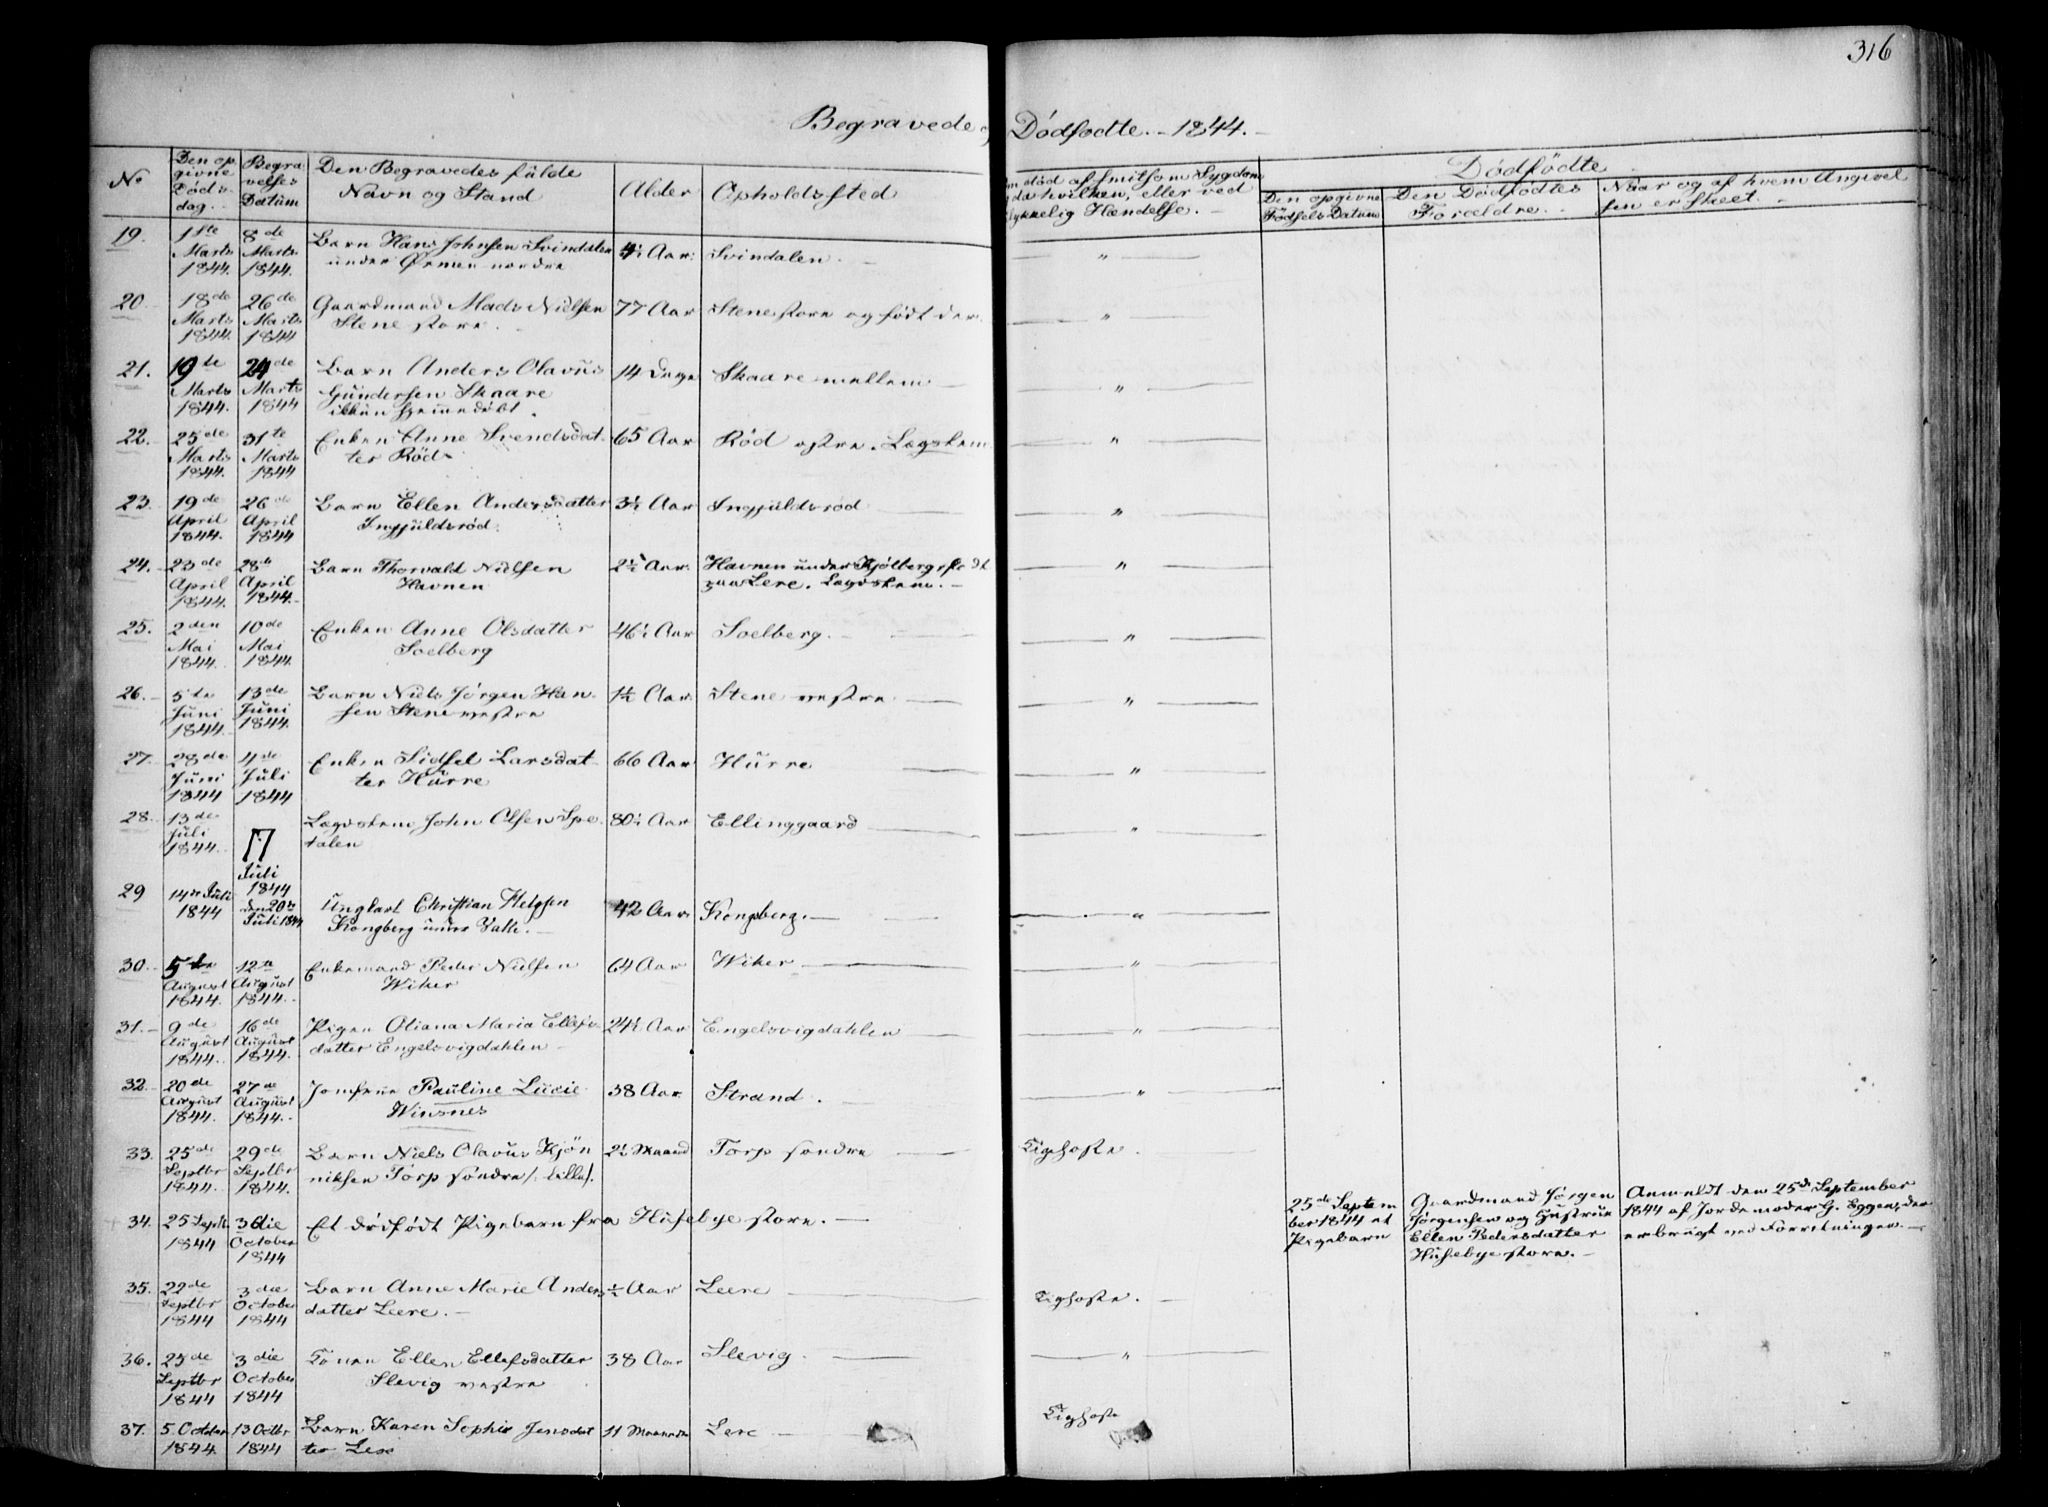 316
Begravede og Dødfødte. - 1844. -
No
Den op-
givne
Døds-
dag.
Begra-
velses
Datum
Den Begravedes fulde
Navn og Stand
Alder
Opholdssted
død af smitsom Sygdom
da hvilken, eller ved
lykkelig Hændelse. -
Dødfödte
Den opgivne
Fødsels Datum
Den Dødfødtes
Forældre.
Naar og af hvem Angivel
sen er skeet. -
19. 1ste Marts 1844. 8de Marts 1844. Barn Hans Johnsen Svindalen 4½ Aar. Svindalen. "
under Ørmen nordre
20. 18de Marts 1844. 26de Marts 1844 Gaardmand Mads Nielsen 77 Aar Stene store og født der. "
Stene store.
21. 19de Marts 1844. 24de Marts 1844 Barn Anders Olavus 14 Dage Skaare mellem "
Gundersen Skaare
ikkun hjemmedøbt.
22. 25de Marts 1844. 31te Marts 1844 Enken Anne Svendsdat- 65 Aar Rød østre. Lægslem "
ter Rød
23. 19de April 1844. 26de April 1844 Barn Ellen Andersdatter 3½ Aar Ingjuldsrød "
Ingjuldsrød.
24. 23de April 1844. 28de April 1844. Barn Thorvald Nielsen 2½ Aar. Havnen under Kjølberg "
Havnen Lere. Lægdslem. -
25. 2den Mai 1844. 10de Mai 1844. Enken Anne Olsdatter 46½ Aar Soelberg. "
Soelberg
26. 5te Juni 1844. 13de Juni 1844. Barn Niels Jørgen Han- 1½ Aar. Stene vestre "
sen Stene vestre
27. 28de Juni 1844 4de Juli 1844 Enken Sidsel Larsdat- 66 Aar Hurre "
ter Hurre
28. 13de Juli 1844. 17 Juli 1844 Lægdslem John Olsen Spe- 80½ Aar Ellinggaard "
talen
29 14de Juli 1844 den 20de Juli 1844 Ungkarl Christian 42 Aar. Kongsberg. "
Kongberg under -
30. 5te August 1844. 12te August 1844. Enkemand Peder Nielsen 64 Aar Wiker "
Wiker
31. 9de August 1844. 16de August 1844. Pigen Oliana Maria Ellefs- 24½ Aar Engelsvigdahlen "
datter Engelsvigdahlen -
32. 20de August 1844. 27de August 1844. Jomfrue Pauline Lucie 38 Aar. Strand. "
Winsnes
33. 25de Septbr 1844 29de Septbr 1844. Barn Niels Olavus Kjøn 2½ Maaned Torp søndre Kighoste.
niksen Torp søndre /: Lille :/.
34. 25 Septbr 1844 3die October 1844 Et dødfødt Pigebarn fra Husebye store.
25de Septem
ber 1844 et
Pigebarn
Gaardmand Jørgen
Jørgensen og Hustrue
Ellen Pedersdatter
Husebye store. -
Anmeldt den 25de September
1844 af Jordemoder G. Eggen, der
er brugt ved Forretningen. -
35. 22de Septbr 1844 3die October 1844 Barn Anne Marie Anders ½ Aar Leere Kighoste.
datter Leere. -
36. 25de Septbr 1844 3die October 1844 Konen Ellen Ellefsdatter 38 Aar Slevig. "
Slevig vestre
37. 5. October 1844 13 Octbr 1844 Barn Karen Sophie Jensdat 11 Maaneder Lere Kighoste
ter Lere